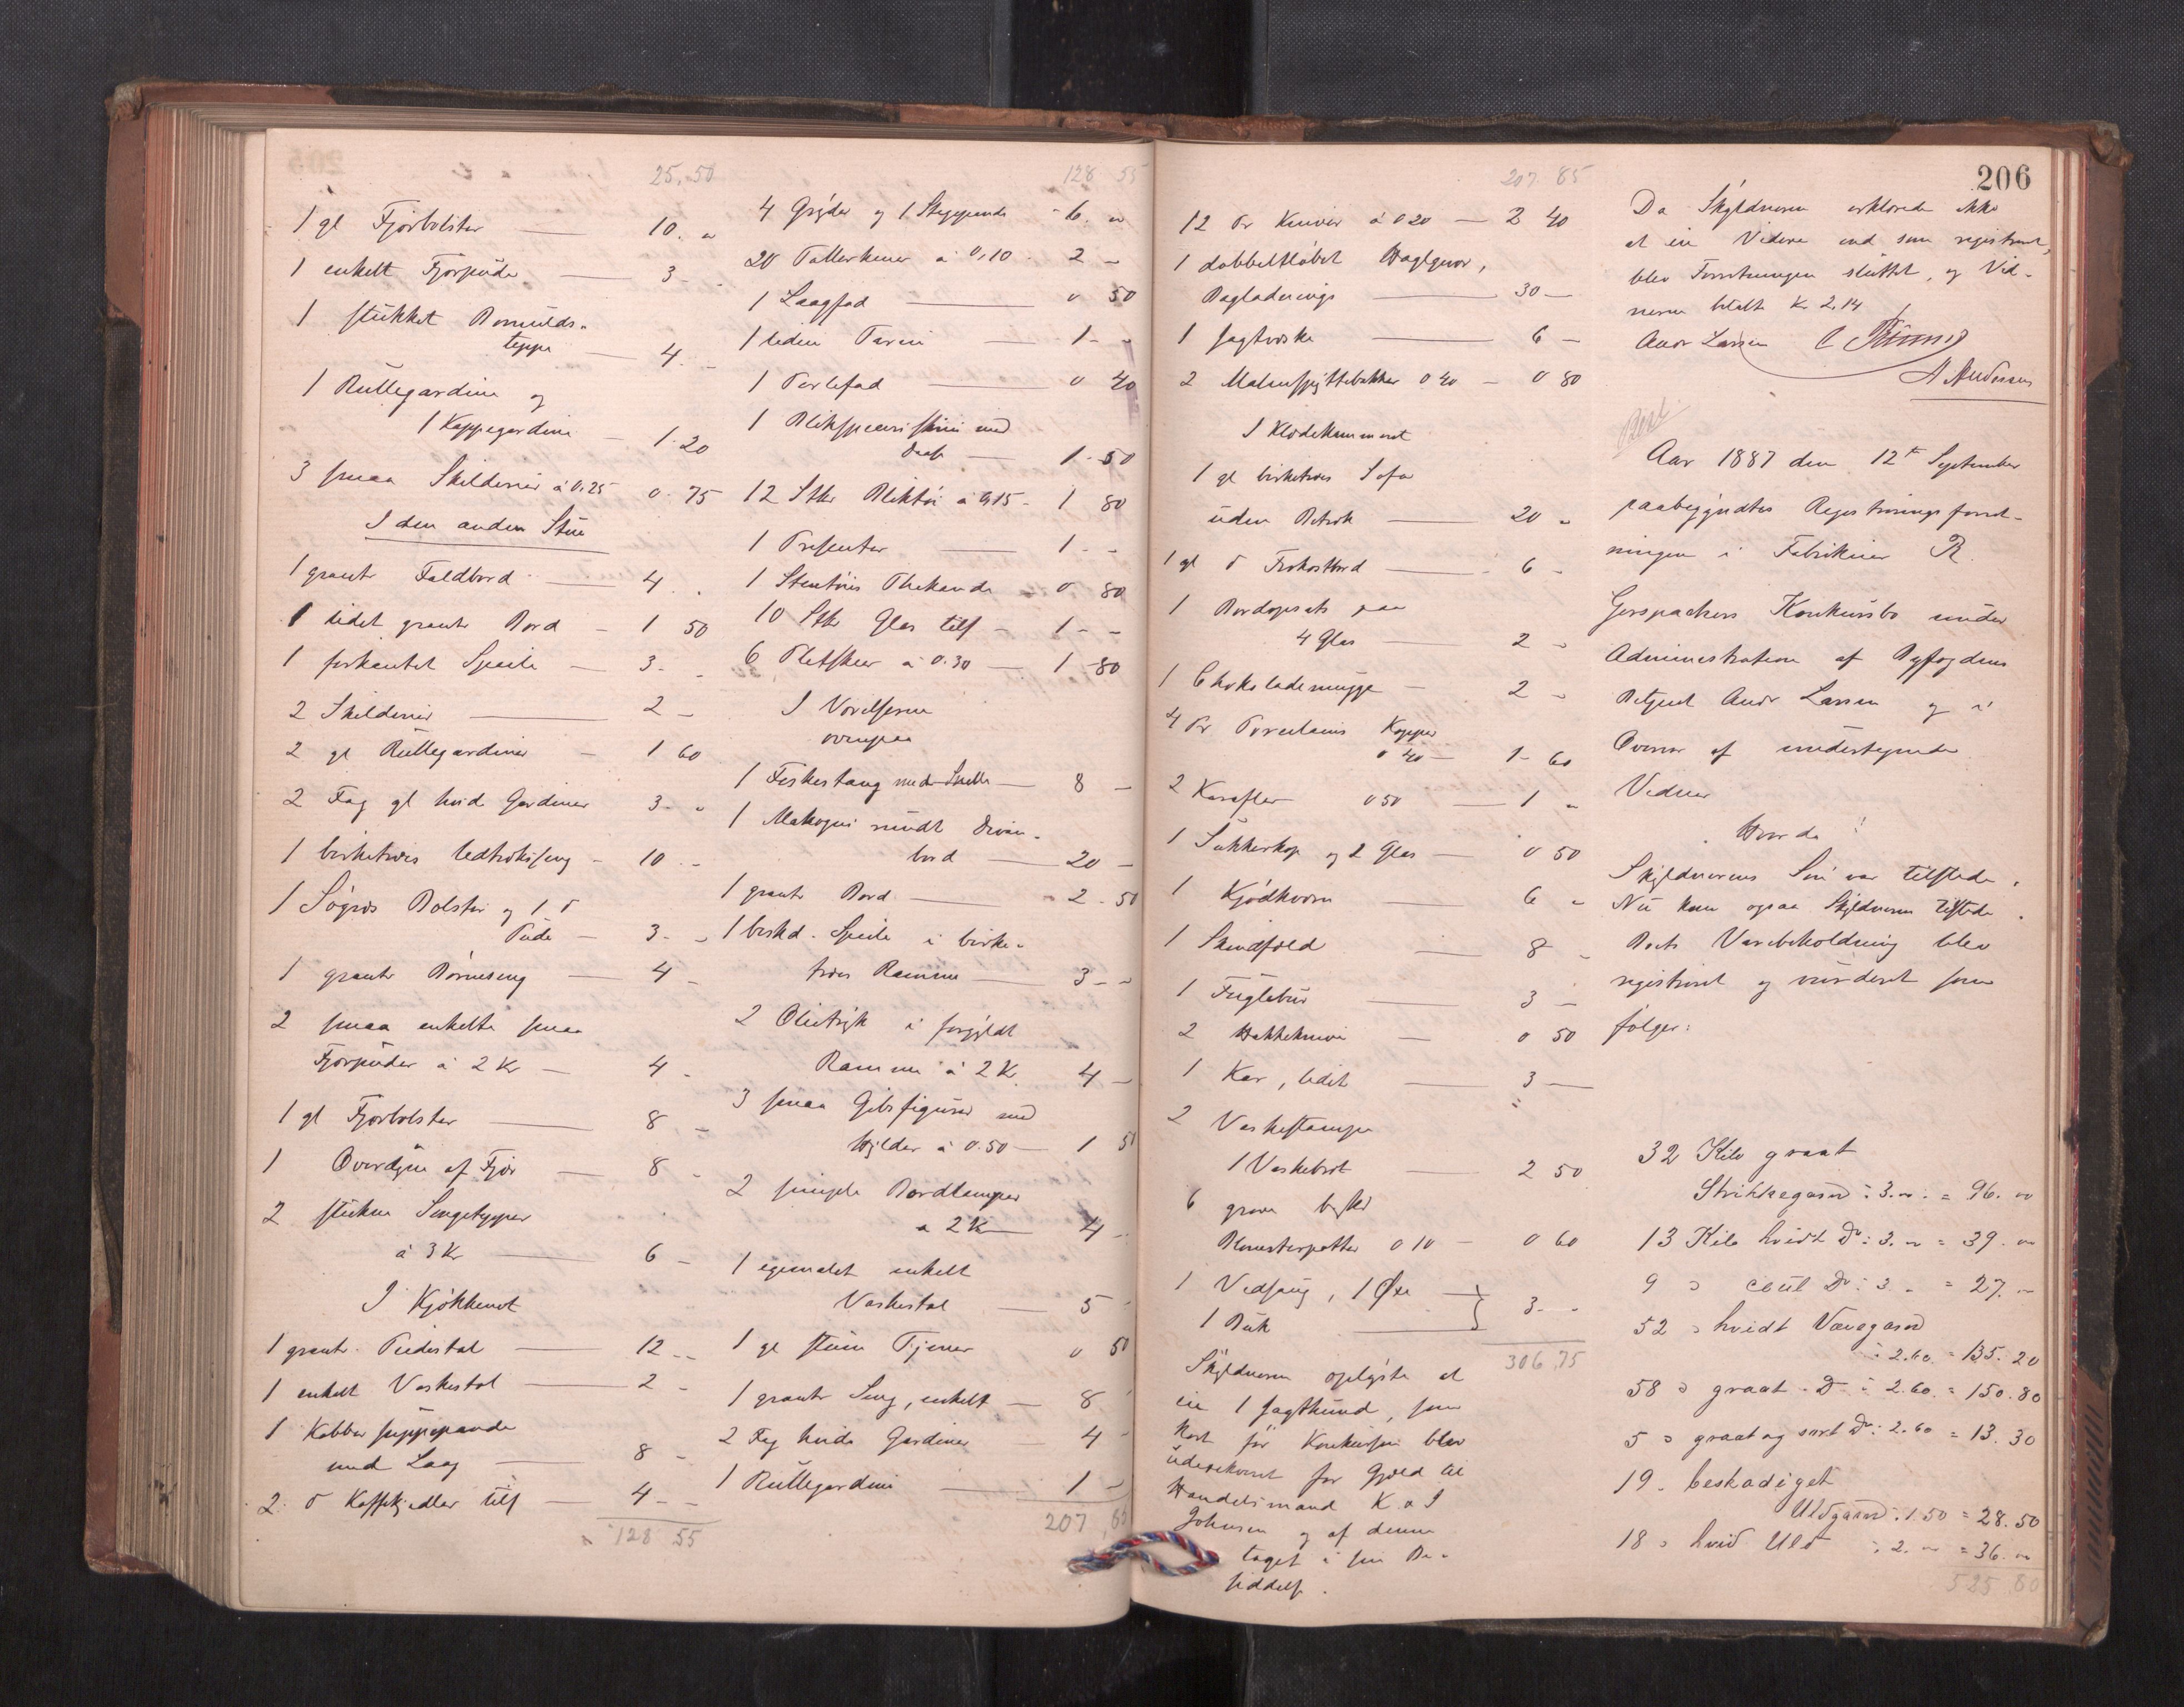 25,50
1 gl Fjørbolster — 10. "
1 enkelt Fjørpude — 3 -
1 stukket Bomulds-
teppe — 4. -
1 Rullegardine og
1 Kappegardine — 1. 20
3 smaa Skilderier à 0,25 0. 75
I den anden Stue
1 grant Faldbord — 4 . .
1 lidet grant Bord — 1 50
1 firkantet Speile — 3. -
2 Skilderier — 2 -
2 gl Rullegardiner — 1 60
2 Fag gl hvide Gardiner 3 - "
1 birketræs Udtræksseng — 10 - -
1 Søgræs Bolster og 1 d
Pude — 3. -
1 grant Børneseng — 4 -
2 smaa enkelte smaa
Fjørpuder à 2 Kr — 4 -
1 gl Fjørbolster — 8 -
1 Overdyne af Fjør — 8 -
2 stukne Sengetepper
à 3 Kr — 6 -
I Kjøkkenet
1 grant — 12 - -
1 enkelt Vaskestol — 2 -
1 Kobber
med Laag — 8 -
2 d Kaffekjedler tils — 4 - -
128 55
128 55
4 Gryder og 1 Stegepande - 6. "
20 Tallerkener à 0,10 . 2 -
1 Laagfad — 0 50
1 liden Terin — 1 - -
1 Perlefad — 0 40
1 med
Daase — 1 - 50
12 Stkr Bliktøi à 0,15 - 1 80
1 Presenter — 1 - -
1 Stentøis Thekande 0 80
10 Stkr Glas tils — 1 - -
6 Pletskeer à 0.30 — 1 - 80
I Værelserne
ovenpaa
1 Fiskestang med Snelle — 8 -
1 Mahogni rundt Divan-
bord — 20 -
1 grant Bord — 2 - 50
1 beskd. Speile i birke-
træes Ramme — 3 - -
2 Olietryk i forgyldt
Ramme à 2 Kr 4 -
3 smaa Gibsfigurer med
Hylder à 0.50 — 1 50
2 simple Bordlamper
a 2 Kr 4 -
1 egemalet enkelt
Vaskestol — 5 -
1 gl stum Tjener 0 50
1 grant Seng, enkelt — 8 -
2 Fag hvide Gardiner 4 -
1 Rullegardine — 1 -
207
207 85
12 Pr Knive à 0 20 — 2 40
1 dobbeltløbet Haglgevær,
Bagladnings — 30 —
1 Jagttaske — 6 —
2 0 40 — 0 80
I Klædekammeret
1 gl birketræs Sofa
uden Betræk — 20 "
1 gl d Frokostbord — 6 -
1 Bordopsats paa
4 Glas — 2 -
1 Chokolademugge — 2 -
4 Pr Porcelains Kopper
0 40 — 1 - 60
2 Karafler 0 50 — 1 "
1 Sukkerkop og 2 Glas — 0 50
1 Kjødkværn — 6 "
1 Skindfæld — 8 -
1 Fuglebur — 3 —
2 Hakkeknive — 0 50
1 Kar, lidet — 3 —
2 Vaskestamper
1 Vaskebræt — 2 50
6 grove beskd
Blomsterpotter 0 10 — 0 60
1 Vedsaug, 1 Øxe
1 Buk 3 - -
306,75
Skyldneren oplyste at
eie 1 Jagthund, som
kort før Konkursen blev
udexekveret for Gjæld til
Handelsmand K. I
Johnsen og af denne
taget i sin Be-
siddelse.
206
Da Skyldneren erklærede ikke
at eie Videre end som registreret,
blev Forretningen sluttet, og Vid-
nerne betalt Kr 2,14
Andr Larsen
A Andersen
Aar 1887 den 12te September
paabegyndtes Registreringsforret-
ningen i Fabrikeier R.
Gerspachers Konkursbo under
Administration af Byfogdens
Betjent Andr Larsen og i
Overvær af undertegnede
Vidner
Hvorda:
Skyldnerens Søn var tilstede.
Nu kom ogsaa Skyldneren tilstede.
Boets Varebeholdning blev
registreret og vurderet som
følger:
32 Kilo graat
Strikkegarn : 3. " = 96. "
13 Kilo hvidt Do : 3. " = 39. "
9 " Do : 3 . " = 27. "
52 " hvidt Vævegarn
: 2.60 = 135. 20
58 " graat D : 2.60. = 150. 80
5 " graat og sort Do : 2.60 = 13. 30
19 . beskadiget
Uldgarn : 1.50 = 28.50
18 " hvid Uld : 2. " = 36. "
525,80